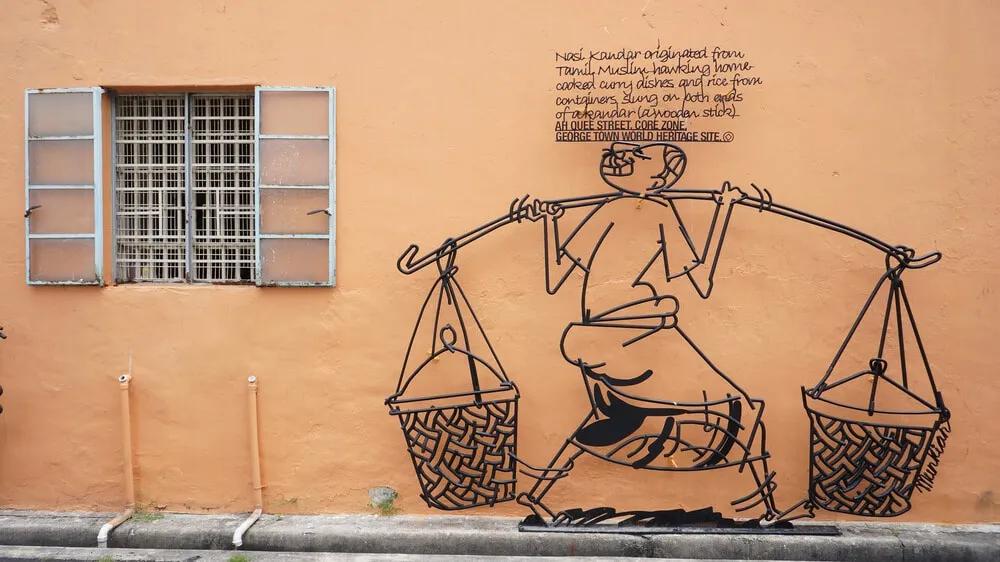 Nasi Kandar originated from
Tamil Muslim hawking home-
cooked curry dishes and rice from
containers slung on both ends
of a kandar (a wooden stick)
AH QUEE STREET, CORE ZONE,
GEORGE TOWN WORLD HERITAGE SITE. ©
Munkian